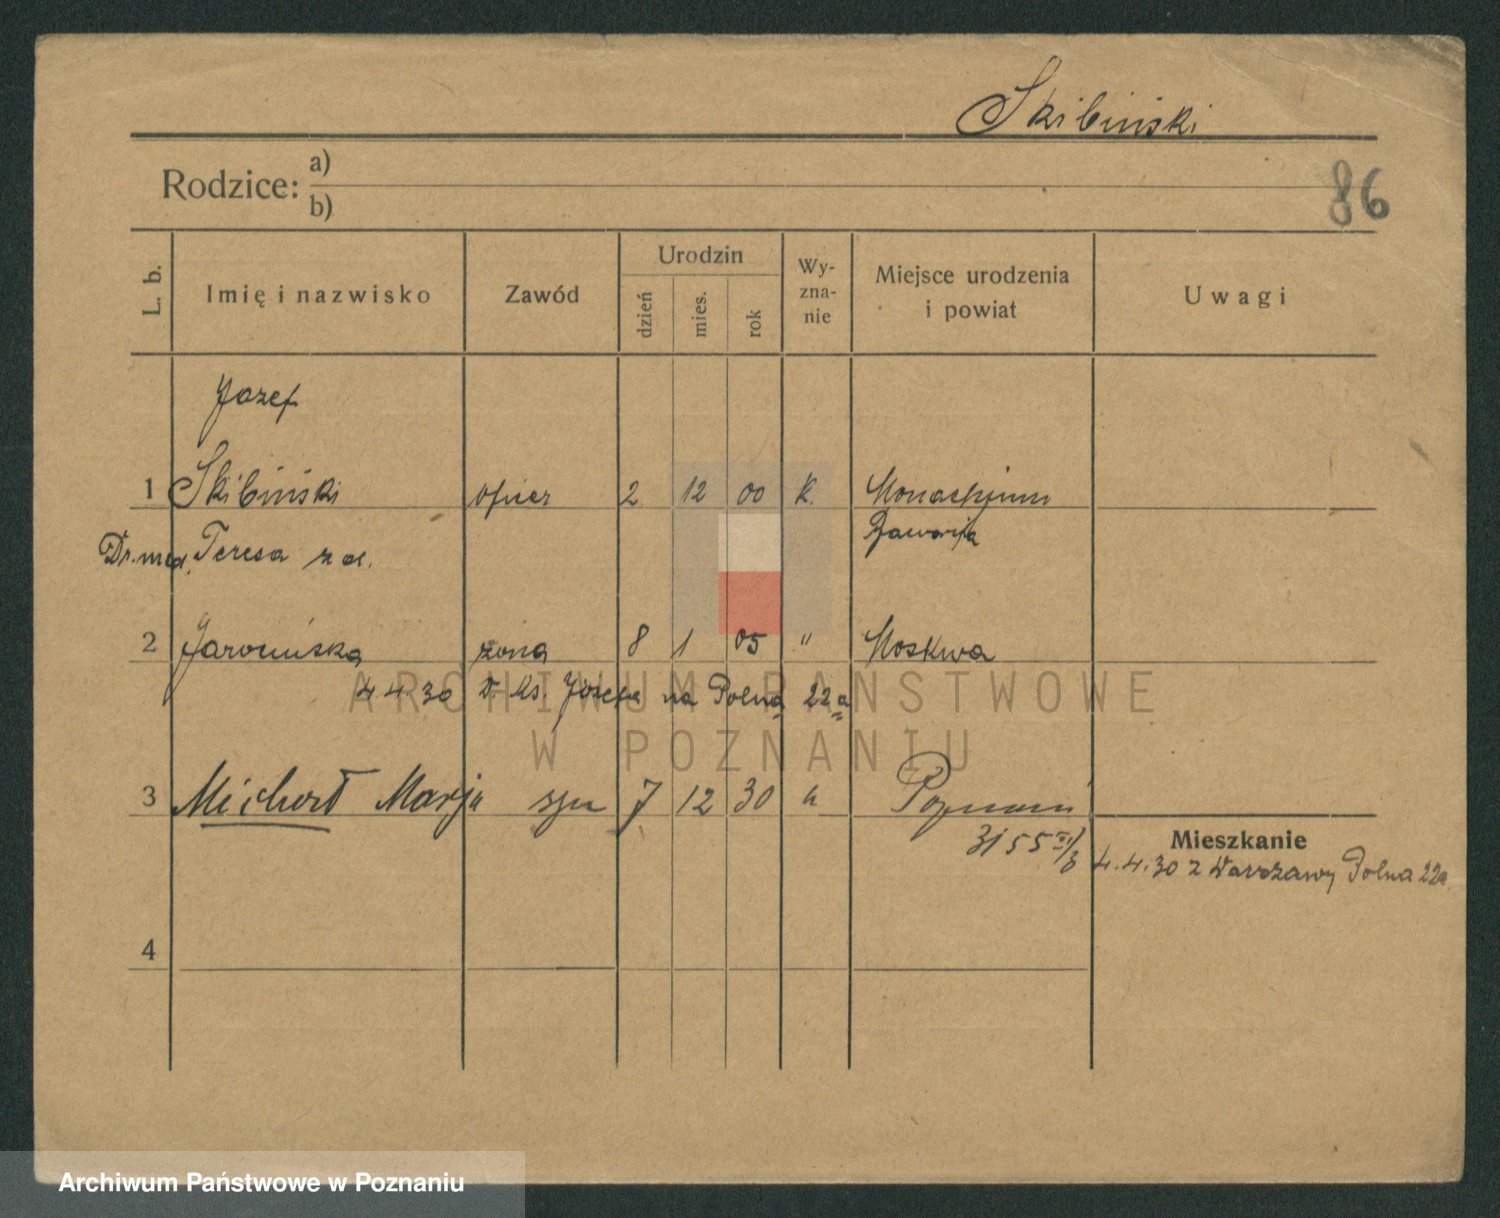 Skibiński
86
Rodzice: a)
b)
L. b. Imię i nazwisko Zawód Urodzin dzień mies. rok Wy-zna-nie Miejsce urodzenia i powiat Uwagi
Józef
1 Skibiński oficer 2 12 00 k. Monachjum
Bawarja
Dr. med. Teresa z d.
2 Jarocińska żona 8 1 05 " Moskwa
4.4.30 Józefa na Polna 22a
3 Michał Marja syn 7 12 30 " Poznań
3155
Mieszkanie
4.4.30 z Warszawy Polna 22a
4
ARCHIWUM PAŃSTWOWE
W POZNANIU
Archiwum Państwowe w Poznaniu